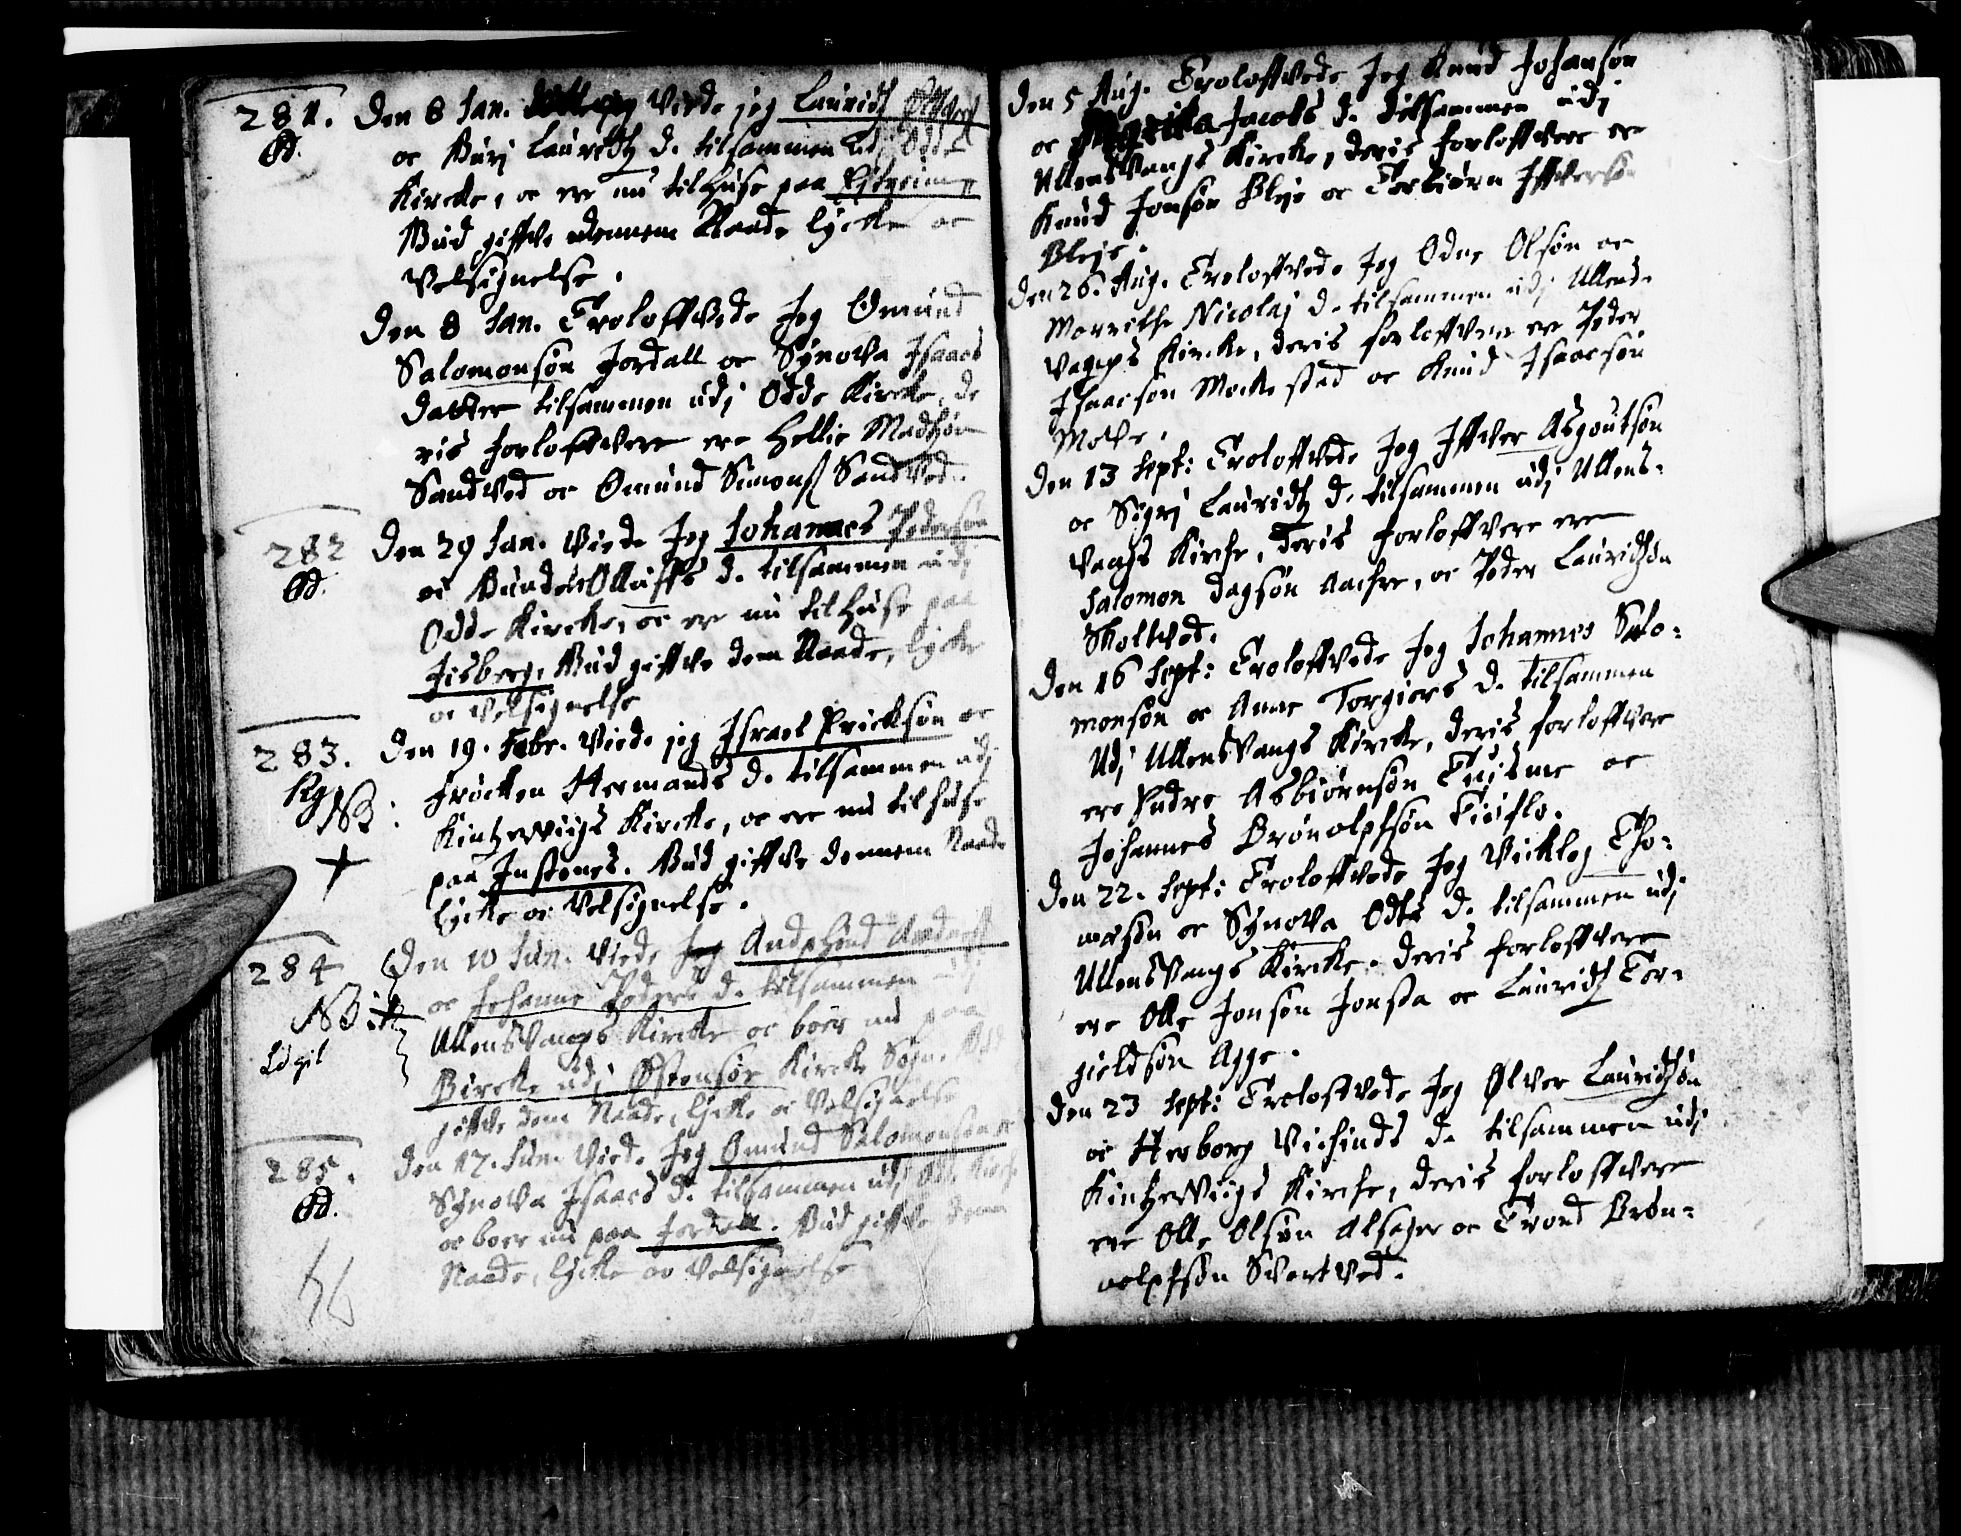 281. Den 8 Jan. Viede jeg Lauridtz
Od. oc Buri Lauridtz d. tilsammen udj Odde
Kircke, oc ere nu tilhuse paa Eitreim
Gud giffve dennem Naade lycke oc
Velsignelse.
Den 8 Jan. Troloffvede Jeg Omund
Salomonsøn Jordall oc Synova Isaacs
datter tilsammen udj Odde Kircke, de
ris forloffvere ere Hellie Madtzøn
Sandved oc Omund Simons Sandved.
282 Den 29 Jan. Viede Jeg Johannes Pedersøn
Od. oc Olluffs d. tilsammen udj
Odde Kircke, oc ere nu tilhuse paa
Jisberg, Gud giffve dem Naade, lycke
oc Velsignelse
283. Den 19. Febr. Viede jeg Israel Ericksøn oc
Frøcken Hermands d. tilsammen udj
NB: Kintzerviigs Kircke, oc ere nu tilhuse
paa Instenes. Gud giffve dennem Naade
lycke oc Velsignelse.
284 Den 10 Jun. Viede Jeg
oc Johanne Peders d. tilsammen udj
NB Ullensvangs Kircke oc boer nu paa
Bircke udj Østensøe Kircke Sogn. Gud
giffve dem Naade, lycke oc Velsignelse
285. Den 17. Jun. Viede Jeg Omund Salomonsøn oc
Od. Synova Isaacs d. tilsammen udj Odde Kircke
oc boer nu paa Jordall. Gud giffve dem
Naade, lycke oc Velsignelse
Den 5 Aug. Troloffvede Jeg Knud Johansøn
oc Jacobs d. tilsammen udj
Ullensvangs Kircke, deris forloffvere ere
Knud Jonsøn Bleje oc Torbiørn Iffversøn
Bleje.
Den 26. Aug. Troloffvede Jeg Odne Olsøn oc
Marrithe Nicolaj d. tilsammen udj Ullens-
vangs Kircke, deris forloffvere ere Peder
Isaacsøn Mockestad oc Knud Isaacsøn
Move.
Den 13 Sept: Troloffvede Jeg Iffver Asgoutsøn
oc Sigri Lauridtz d. tilsammen udj Ullens-
vangs Kircke, deris forloffvere ere
Salomon Dagsøn Aachre, oc Peder Lauridtzøn
Skoltved.
Den 16 Sept: Troloffvede Jeg Johannes Salo-
monsøn oc Anne Torgiers d. tilsammen
Udj Ullensvangs Kircke, deris forloffvere
ere Asbiørnsøn oc
Johannes Brønolpfsøn Tioflo.
Den 22. Sept: Troloffvede Jeg Vicklej Tho-
mæsøn oc Synova Odts d. tilsammen udj
Ullensvangs Kircke. deris forloffvere
ere Olle Jonsøn Jonsta oc Lauridtz Tor-
gieldsøn Agge.
Den 23 Sept: Troloffvede Jeg Ølver Lauridtzøn
oc Herborg Vichinds d. tilsammen udj
Kintzerviigs Kircke, deris forloffvere
ere Olle Olsøn Alsager oc Trond Brøn-
oolpfsøn Svartved.